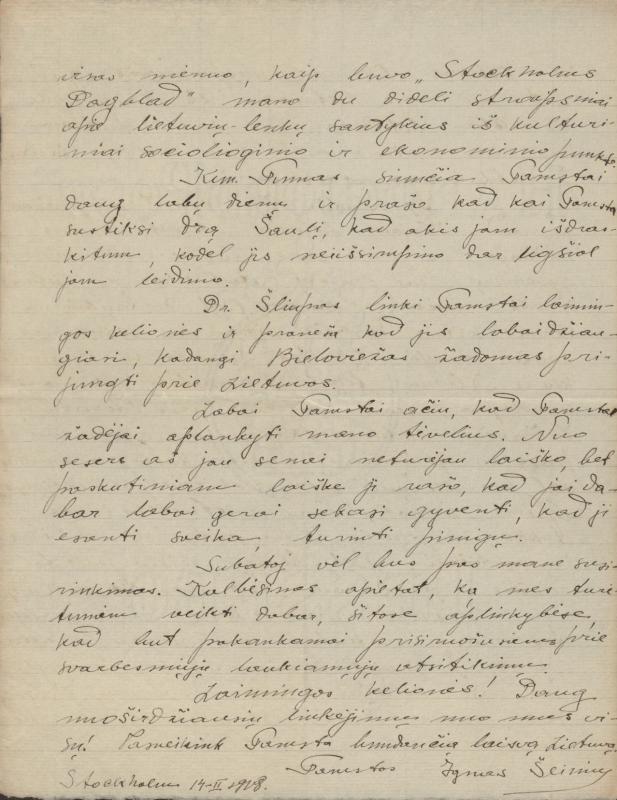 visas mėnuo, kaip buvo „Stockholms
Dagblad" mano du dideli straipsniai
apie lietuvių-lenkų santykius iš kulturi-
niai sociologinio ir ekonominio punkto.
Kun. Tumas siunčia Tamstai
daug labų dienų ir prašo kad kai Tamsta
sustiksi drg Šaulį, kad akis jam išdras-
kitum, kodėl jis neišsirūpino dar ligšiol
jam leidimo.
Dr. Šliupas linki Tamstai laimin-
gos kelionės ir praneša kad jis labai džiau-
giasi, kadangi Bieloviežas žadomas pri-
jungti prie Lietuvos.
Labai Tamstai ačiu, kad Tamsta
žadėjai aplankyti mano tėvelius. Nuo
sesers aš jau senai neturėjau laiško, bet
paskutiniam laiške ji rašo, kad jai da-
bar labai gerai sekasi gyventi, kad ji
esanti sveika turinti pinigų.
Subatoj vėl bus pas mane susi-
rinkimas. Kalbėsimės apie tai, ką mes turė-
tumėm veikti dabar, šitose aplinkybėse,
kad but pakankamai prisiruošusiems prie
svarbesniųjų laukiamųjų atsitikimų.
Laimingos kelionės! Daug
nuoširdžiausių linkėjimų nuo mus vi-
sų! Pasveikink Tamsta bundančią laisvą Lietuvą.
Tamstos Ignas Šeinius
Stockholm 14-II 1918.